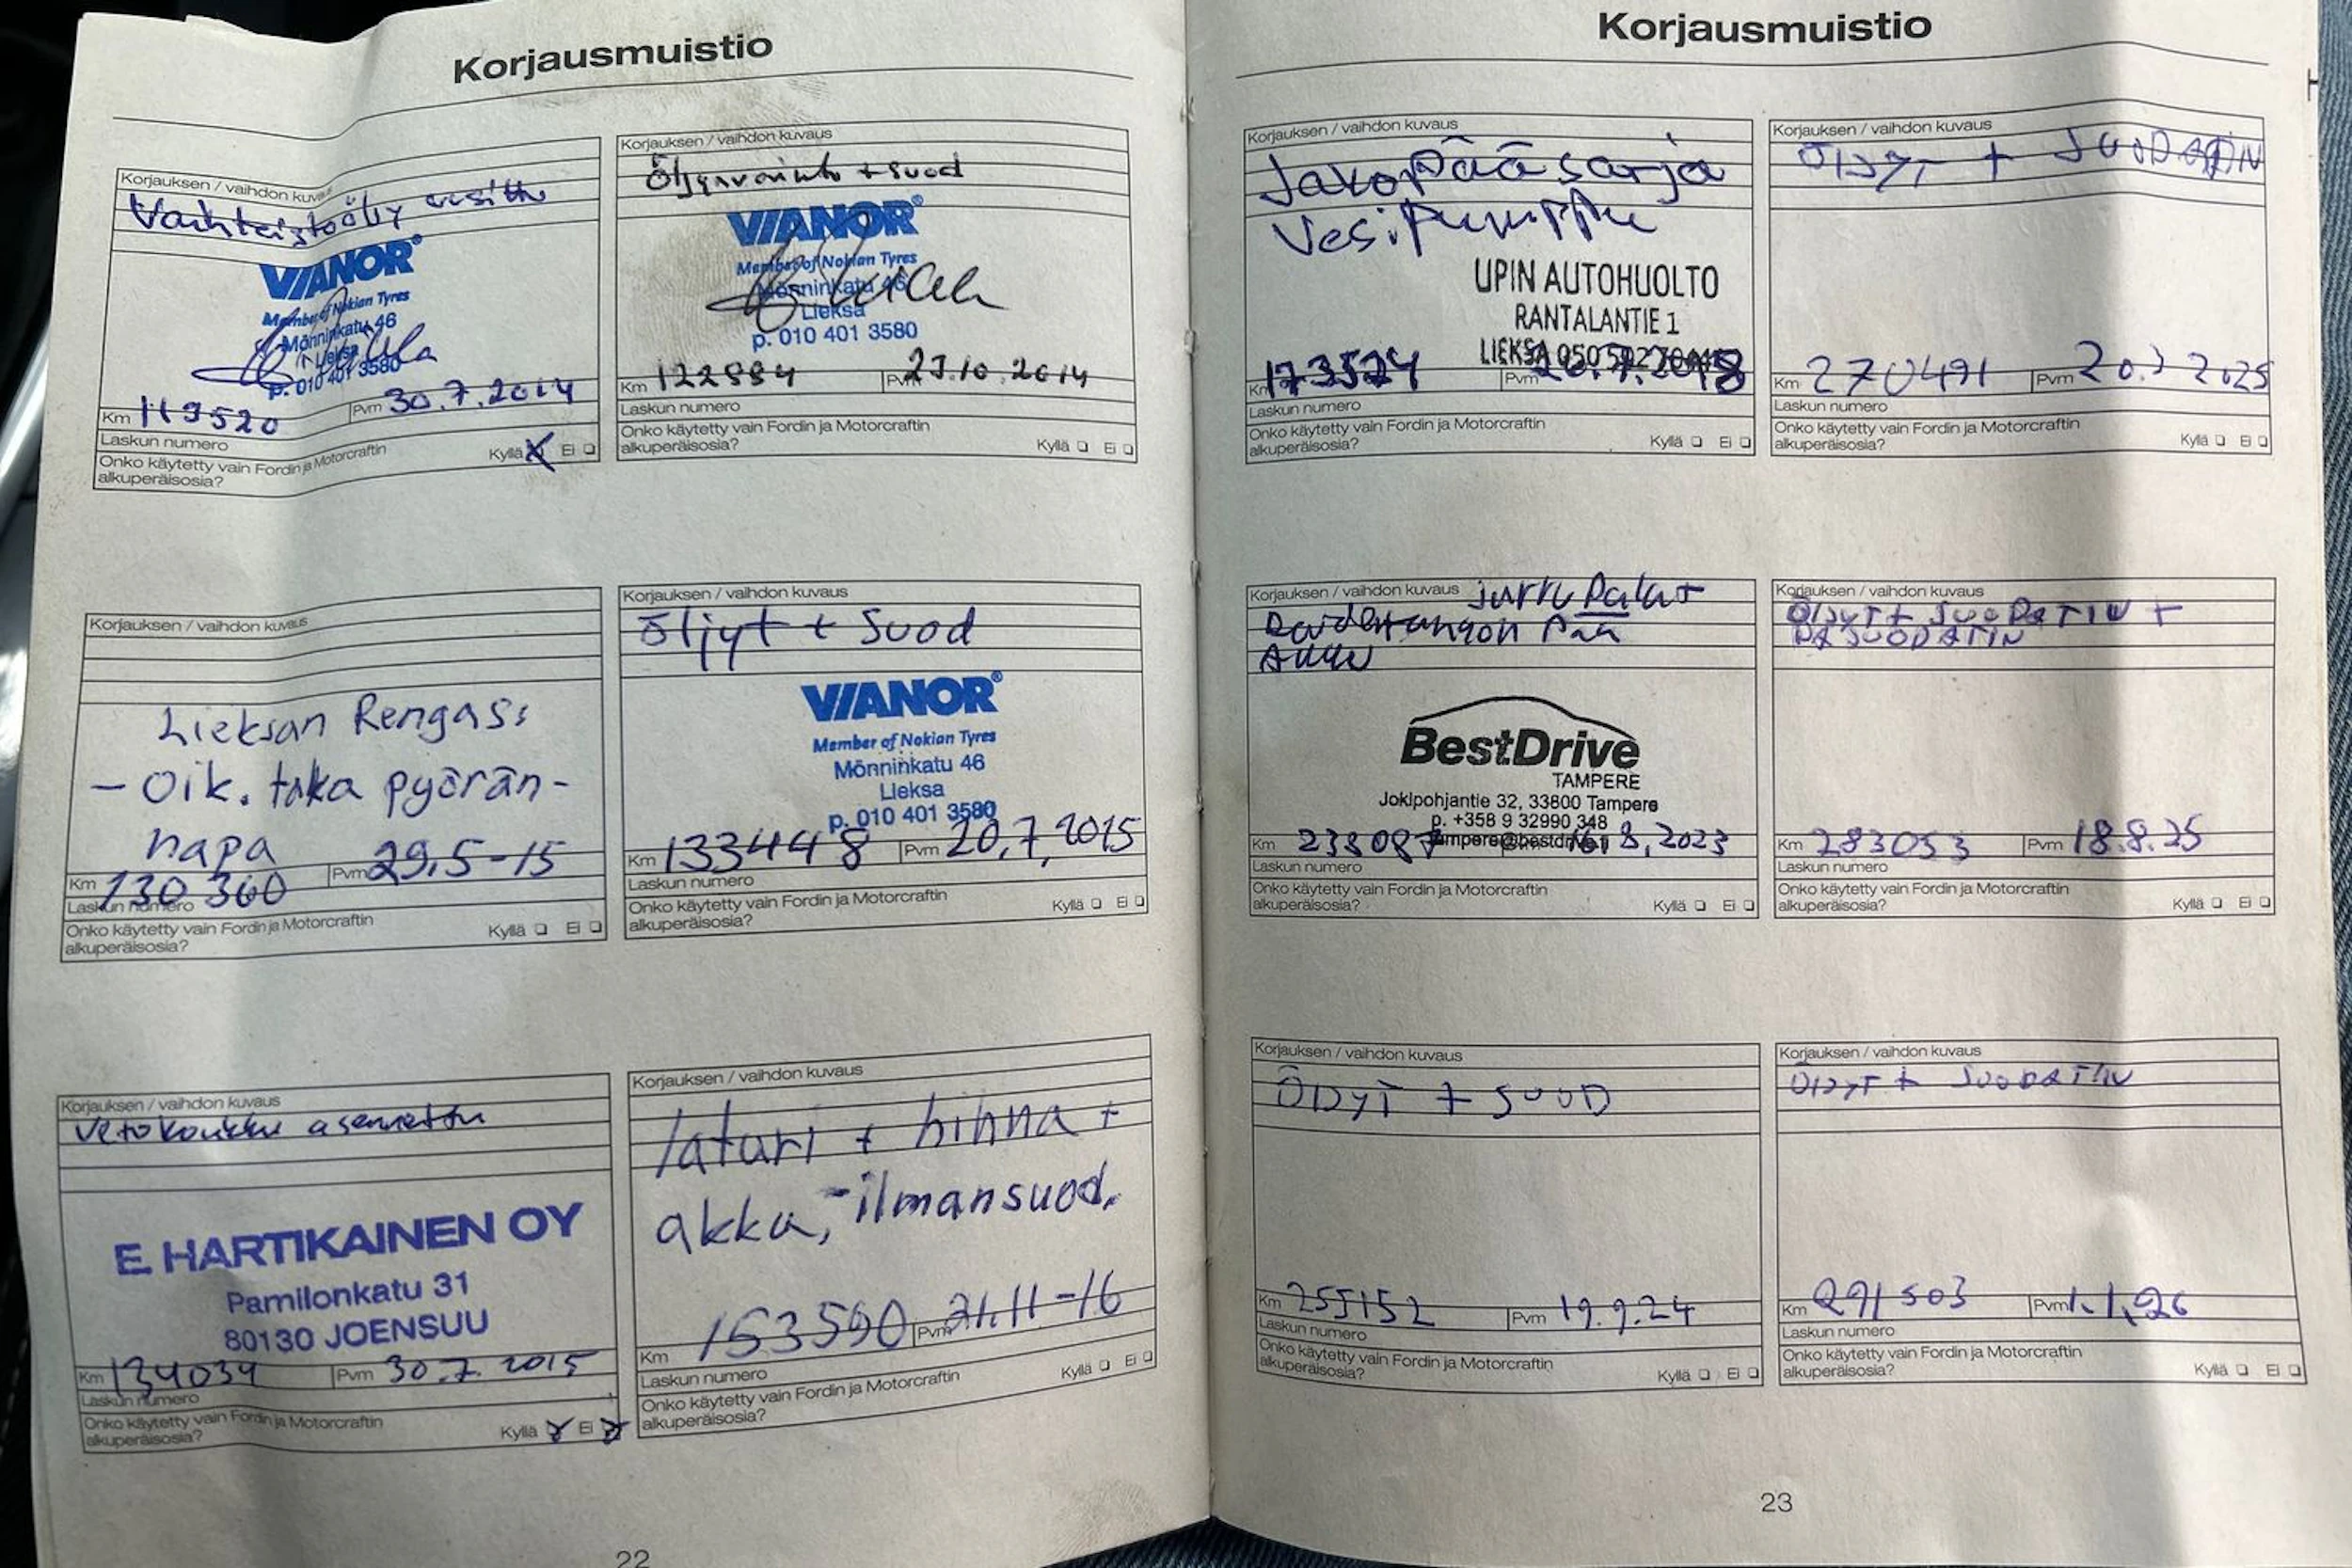 Korjausmuistio
Korjauksen / vaihdon kuvaus
Vaihteistoöljy vaihdettu
VIANOR®
Member of Nokian Tyres
Mönninkatu 46
Lieksa
p. 010 401 3580
Km 119520 Pvm 30.7.2014
Laskun numero
Onko käytetty vain Fordin ja Motorcraftin
alkuperäisosia? Kyllä X Ei
Korjauksen / vaihdon kuvaus
Öljynvaihto + suod
VIANOR®
Member of Nokian Tyres
Mönninkatu 46
Lieksa
p. 010 401 3580
Km 122884 Pvm 23.10.2014
Laskun numero
Onko käytetty vain Fordin ja Motorcraftin
alkuperäisosia? Kyllä Ei
Korjauksen / vaihdon kuvaus
Lieksan Rengas:
- Oik. taka pyörän-
napa
Km 130360 Pvm 29.5-15
Laskun numero
Onko käytetty vain Fordin ja Motorcraftin
alkuperäisosia? Kyllä Ei
Korjauksen / vaihdon kuvaus
Öljyt + Suod
VIANOR®
Member of Nokian Tyres
Mönninkatu 46
Lieksa
p. 010 401 3580
Km 133448 Pvm 20.7.2015
Laskun numero
Onko käytetty vain Fordin ja Motorcraftin
alkuperäisosia? Kyllä Ei
Korjauksen / vaihdon kuvaus
Vetokoukku asennettu
E. HARTIKAINEN OY
Pamilonkatu 31
80130 JOENSUU
Km 134034 Pvm 30.7.2015
Laskun numero
Onko käytetty vain Fordin ja Motorcraftin
alkuperäisosia? Kyllä X Ei X
Korjauksen / vaihdon kuvaus
laturi + hihna +
akku, -ilmansuod.
Km 153590 Pvm 21.11-16
Laskun numero
Onko käytetty vain Fordin ja Motorcraftin
alkuperäisosia? Kyllä Ei
22
Korjausmuistio
Korjauksen / vaihdon kuvaus
Jakopääsarja
Vesipumppu
UPIN AUTOHUOLTO
RANTALANTIE 1
LIEKSA 050
Km 173524 Pvm 7.2018
Laskun numero
Onko käytetty vain Fordin ja Motorcraftin
alkuperäisosia? Kyllä Ei
Korjauksen / vaihdon kuvaus
ÖLJYT + SUODATIN
Km 270491 Pvm 20.3 2025
Laskun numero
Onko käytetty vain Fordin ja Motorcraftin
alkuperäisosia? Kyllä Ei
Korjauksen / vaihdon kuvaus jarru Palat
Raidetangon Pää
Akku
BestDrive
TAMPERE
Jokipohjantie 32, 33800 Tampere
p. +358 9 32990 348
tampere@bestdrive.fi
Km 238087 16.8.2023
Laskun numero
Onko käytetty vain Fordin ja Motorcraftin
alkuperäisosia? Kyllä Ei
Korjauksen / vaihdon kuvaus
ÖLJYT + SUODATIN +
RA SUODATIN
Km 283053 Pvm 18.8.25
Laskun numero
Onko käytetty vain Fordin ja Motorcraftin
alkuperäisosia? Kyllä Ei
Korjauksen / vaihdon kuvaus
ÖLJYT + SUOD
Km 255152 Pvm 19.9.24
Laskun numero
Onko käytetty vain Fordin ja Motorcraftin
alkuperäisosia? Kyllä Ei
Korjauksen / vaihdon kuvaus
ÖLJYT + SUODATIN
Km 291503 Pvm 1.1.26
Laskun numero
Onko käytetty vain Fordin ja Motorcraftin
alkuperäisosia? Kyllä Ei
23